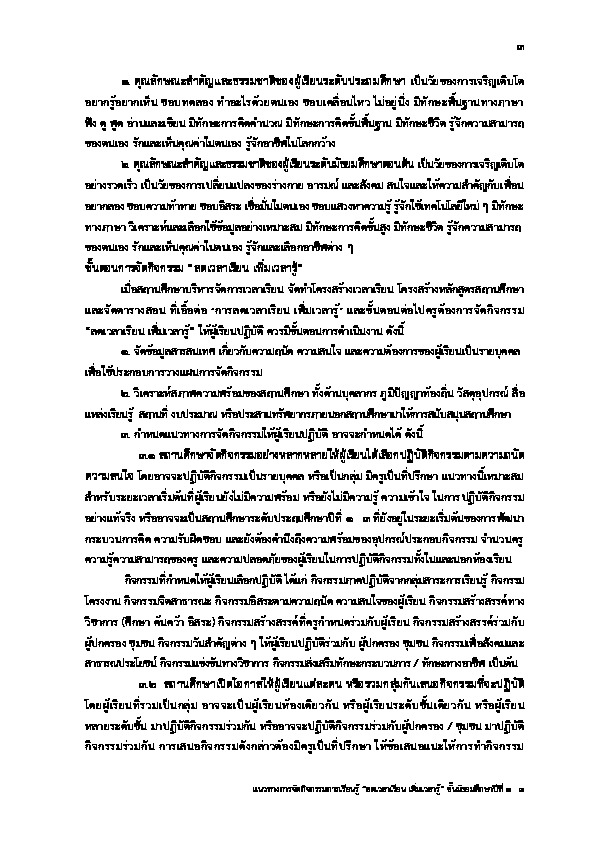 ๓
๑. คุณลักษณะสำคัญและธรรมชาติของผู้เรียนระดับประถมศึกษา เป็นวัยของการเจริญเติบโต
อยากรู้อยากเห็น ชอบทดลอง ทำอะไรด้วยตนเอง ชอบเคลื่อนไหว ไม่อยู่นิ่ง มีทักษะพื้นฐานทางภาษา
ฟัง ดู พูด อ่านและเขียน มีทักษะการคิดคำนวณ มีทักษะการคิดขั้นพื้นฐาน มีทักษะชีวิต รู้จักความสามารถ
ของตนเอง รักและเห็นคุณค่าในตนเอง รู้จักอาชีพในโลกกว้าง
๒. คุณลักษณะสำคัญและธรรมชาติของผู้เรียนระดับมัธยมศึกษาตอนต้น เป็นวัยของการเจริญเติบโต
อย่างรวดเร็ว เป็นวัยของการเปลี่ยนแปลงของร่างกาย อารมณ์ และสังคม สนใจและให้ความสำคัญกับเพื่อน
อยากลอง ชอบความท้าทาย ชอบอิสระ เชื่อมั่นในตนเอง ชอบแสวงหาความรู้ รู้จักใช้เทคโนโลยีใหม่ ๆ มีทักษะ
ทางภาษา วิเคราะห์และเลือกใช้ข้อมูลอย่างเหมาะสม มีทักษะการคิดขั้นสูง มีทักษะชีวิต รู้จักความสามารถ
ของตนเอง รักและเห็นคุณค่าในตนเอง รู้จักและเลือกอาชีพต่าง ๆ
ขั้นตอนการจัดกิจกรรม “ลดเวลาเรียน เพิ่มเวลารู้”
เมื่อสถานศึกษาบริหารจัดการเวลาเรียน จัดทำโครงสร้างเวลาเรียน โครงสร้างหลักสูตรสถานศึกษา
และจัดตารางสอน ที่เอื้อต่อ “การลดเวลาเรียน เพิ่มเวลารู้” และขั้นตอนต่อไปครูต้องการจัดกิจกรรม
“ลดเวลาเรียน เพิ่มเวลารู้” ให้ผู้เรียนปฏิบัติ ควรมีขั้นตอนการดำเนินงาน ดังนี้
๑. จัดข้อมูลสารสนเทศ เกี่ยวกับความถนัด ความสนใจ และความต้องการของผู้เรียนเป็นรายบุคคล
เพื่อใช้ประกอบการวางแผนการจัดกิจกรรม
๒. วิเคราะห์สภาพความพร้อมของสถานศึกษา ทั้งด้านบุคลากร ภูมิปัญญาท้องถิ่น วัสดุอุปกรณ์ สื่อ
แหล่งเรียนรู้ สถานที่ งบประมาณ หรือประสานทรัพยากรภายนอกสถานศึกษามาให้การสนับสนุนสถานศึกษา
๓. กำหนดแนวทางการจัดกิจกรรมให้ผู้เรียนปฏิบัติ อาจจะกำหนดได้ ดังนี้
๓.๑ สถานศึกษาจัดกิจกรรมอย่างหลากหลายให้ผู้เรียนได้เลือกปฏิบัติกิจกรรมตามความถนัด
ความสนใจ โดยอาจจะปฏิบัติกิจกรรมเป็นรายบุคคล หรือเป็นกลุ่ม มีครูเป็นที่ปรึกษา แนวทางนี้เหมาะสม
สำหรับระยะเวลาเริ่มต้นที่ผู้เรียนยังไม่มีความพร้อม หรือยังไม่มีความรู้ ความเข้าใจ ในการปฏิบัติกิจกรรม
อย่างแท้จริง หรืออาจจะเป็นสถานศึกษาระดับประถมศึกษาปีที่ ๑ ๓ ที่ยังอยู่ในระยะเริ่มต้นของการพัฒนา
กระบวนการคิด ความรับผิดชอบ และยังต้องคำนึงถึงความพร้อมของอุปกรณ์ประกอบกิจกรรม จำนวนครู
ความรู้ความสามารถของครู และความปลอดภัยของผู้เรียนในการปฏิบัติกิจกรรมทั้งในและนอกห้องเรียน
กิจกรรมที่กำหนดให้ผู้เรียนเลือกปฏิบัติ ได้แก่ กิจกรรมภาคปฏิบัติจากกลุ่มสาระการเรียนรู้ กิจกรรม
โครงงาน กิจกรรมจิตสาธารณะ กิจกรรมอิสระตามความถนัด ความสนใจของผู้เรียน กิจกรรมสร้างสรรค์ทาง
วิชาการ (ศึกษา ค้นคว้า อิสระ) กิจกรรมสร้างสรรค์ที่ครูกำหนดร่วมกับผู้เรียน กิจกรรมสร้างสรรค์ร่วมกับ
ผู้ปกครอง ชุมชน กิจกรรมวันสำคัญต่าง ๆ ให้ผู้เรียนปฏิบัติร่วมกับ ผู้ปกครอง ชุมชน กิจกรรมเพื่อสังคมและ
สาธารณประโยชน์ กิจกรรมแข่งขันทางวิชาการ กิจกรรมส่งเสริมทักษะกระบวนการ / ทักษะทางอาชีพ เป็นต้น
๓.๒ สถานศึกษาเปิดโอกาสให้ผู้เรียนแต่ละคน หรือรวมกลุ่มกันเสนอกิจกรรมที่จะปฏิบัติ
โดยผู้เรียนที่รวมเป็นกลุ่ม อาจจะเป็นผู้เรียนห้องเดียวกัน หรือผู้เรียนระดับชั้นเดียวกัน หรือผู้เรียน
หลายระดับชั้น มาปฏิบัติกิจกรรมร่วมกัน หรืออาจจะปฏิบัติกิจกรรมร่วมกับผู้ปกครอง / ชุมชน มาปฏิบัติ
กิจกรรมร่วมกัน การเสนอกิจกรรมดังกล่าวต้องมีครูเป็นที่ปรึกษา ให้ข้อเสนอแนะให้การทำกิจกรรม
แนวทางการจัดกิจกรรมการเรียนรู้ “ลดเวลาเรียน เพิ่มเวลารู้” ชั้นมัธยมศึกษาปีที่ ๑ ๓